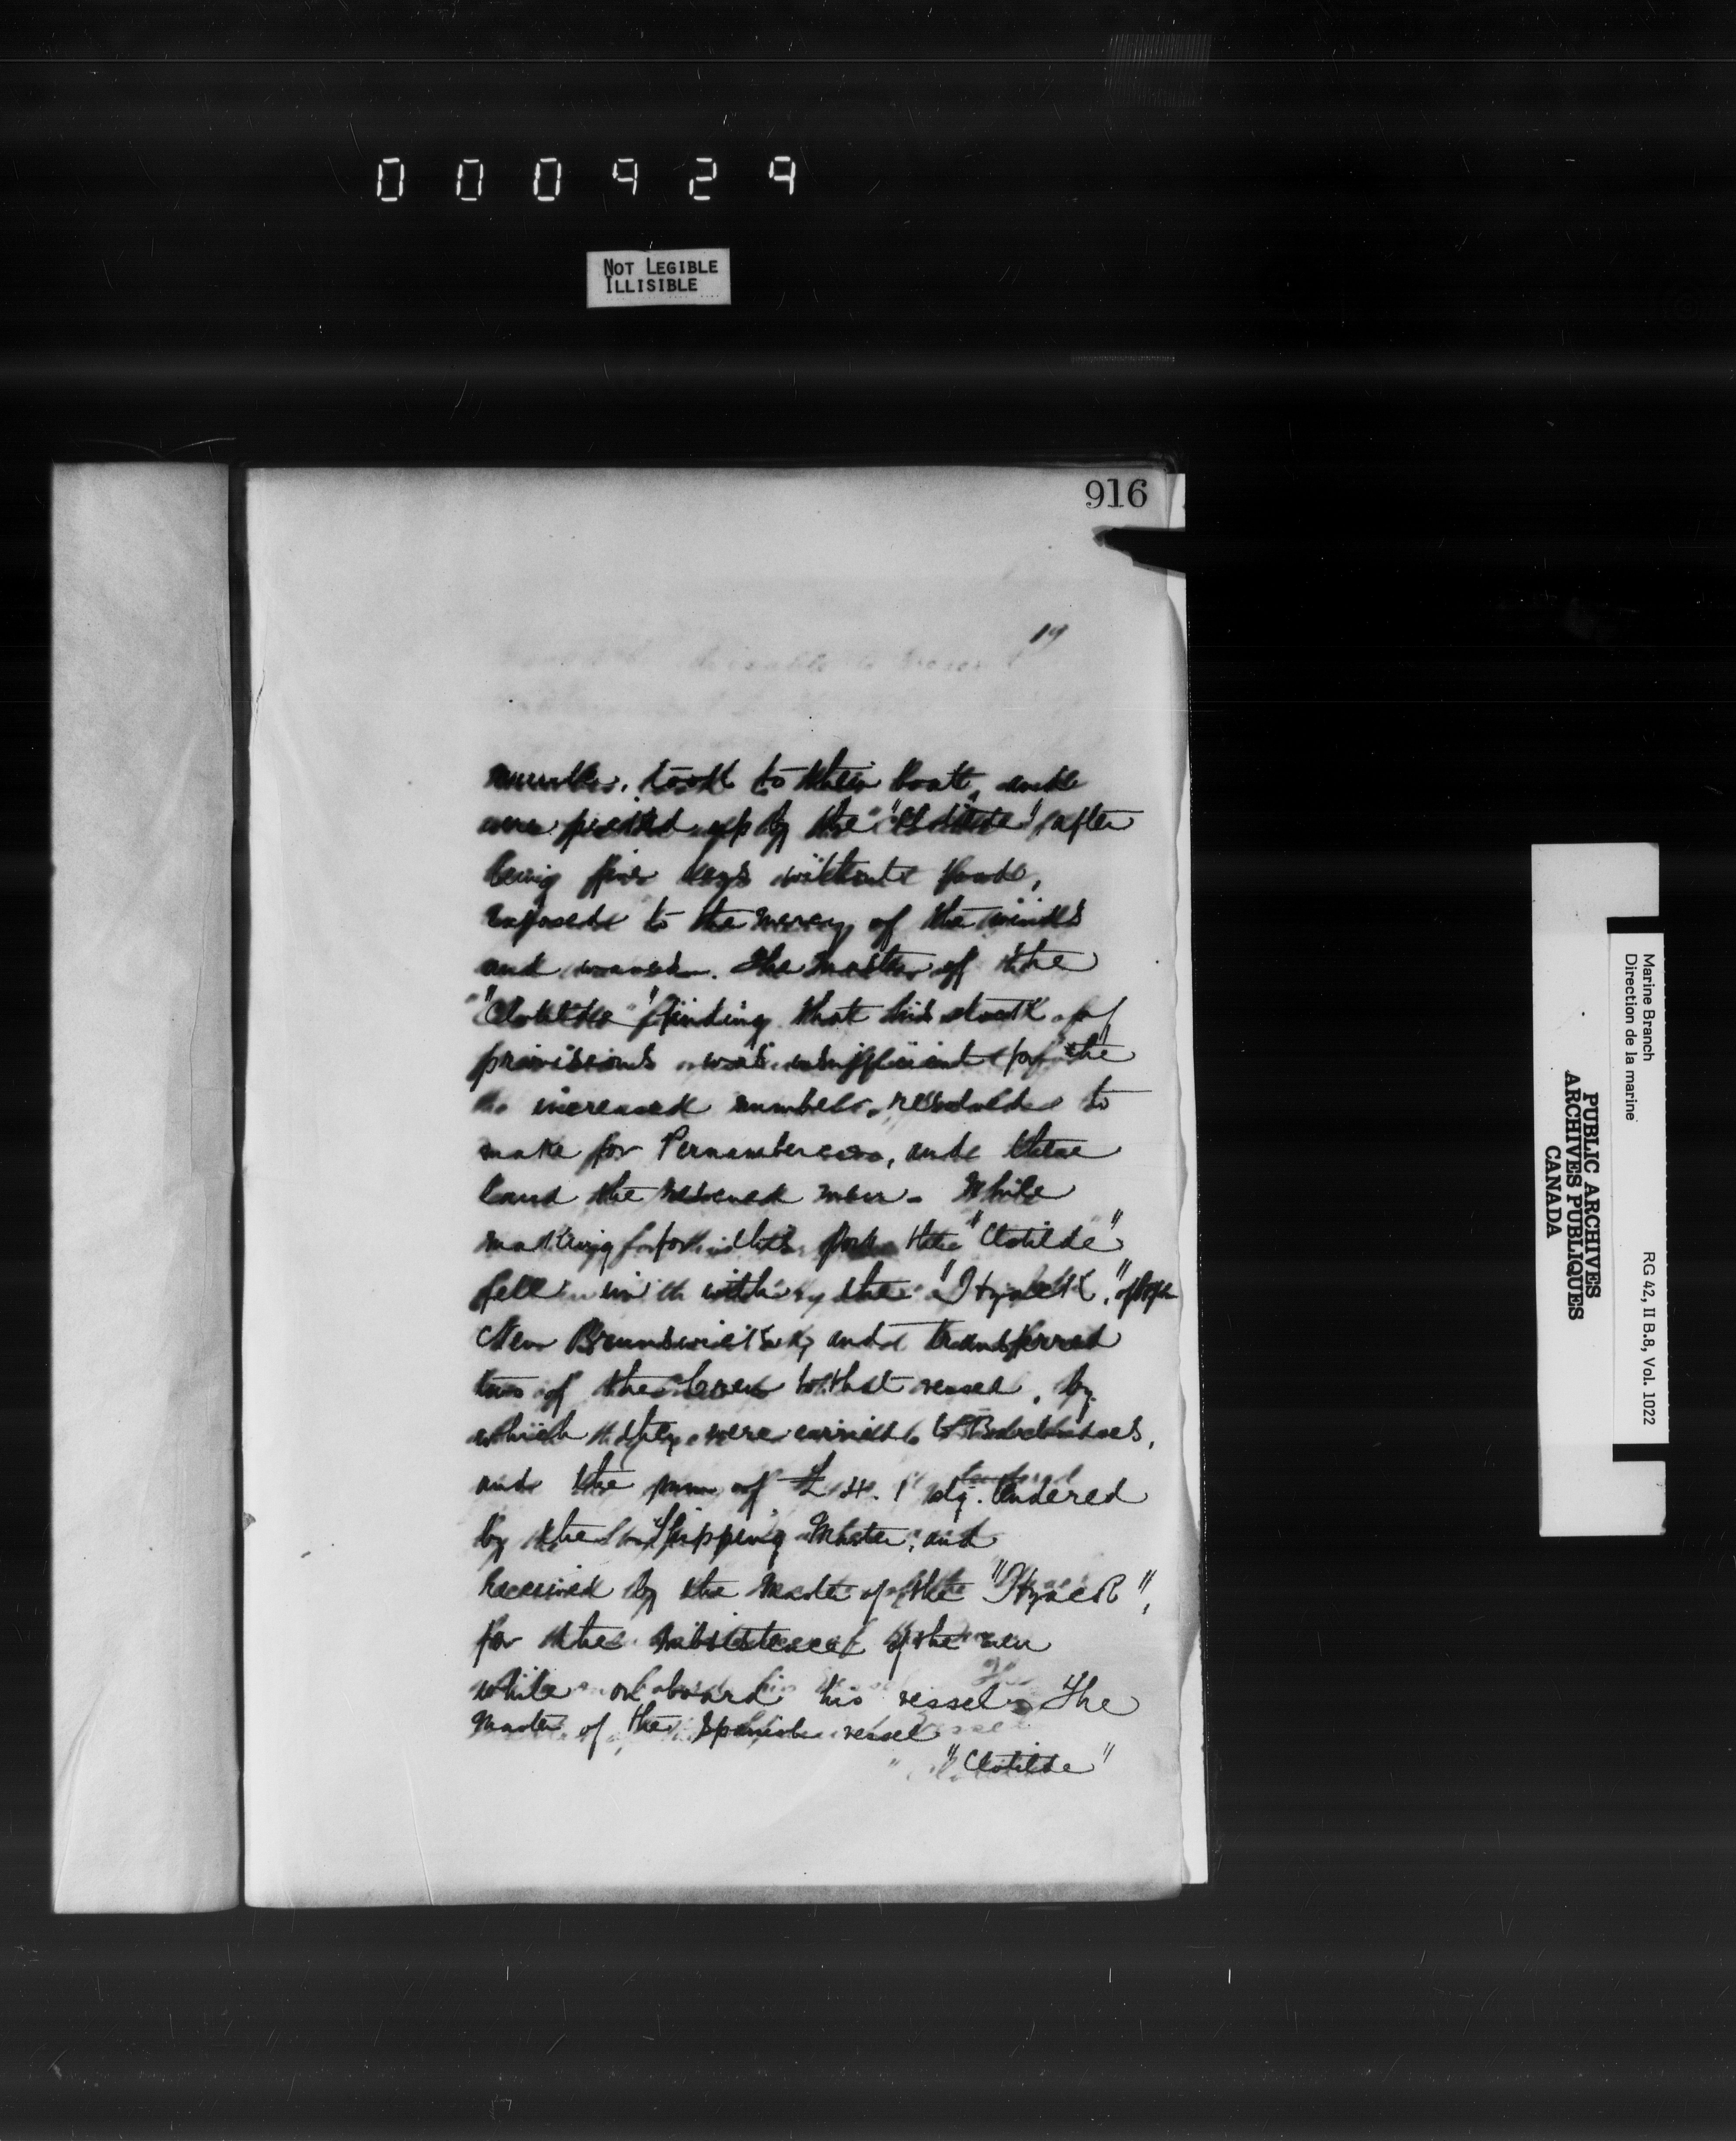 000929
NOT LEGIBLE
ILLISIBLE
916
19
number, took to their boat, and
were picked up by the "Clotilde" after
being five days without food,
exposed to the mercy of the winds
and waves. The master of the
"Clotilde" finding that his stock of
provisions was insufficient for the
increased number, resolved to
make for Pernambuco, and there
land the rescued men. While
making for this port the "Clotilde"
fell in with the of
New Brunswick, and transferred
two of the crew to that vessel, by
which they were carried to Barbadoes,
and the sum of £ 4. 1 stg. tendered
by the Shipping Master, and
received by the Master of the
for the subsistence of the men
while on board his vessel. The
Master of the Spanish vessel
"Clotilde"
Marine Branch
Direction de la marine
RG 42, II B.8, Vol. 1022
PUBLIC ARCHIVES
ARCHIVES PUBLIQUES
CANADA